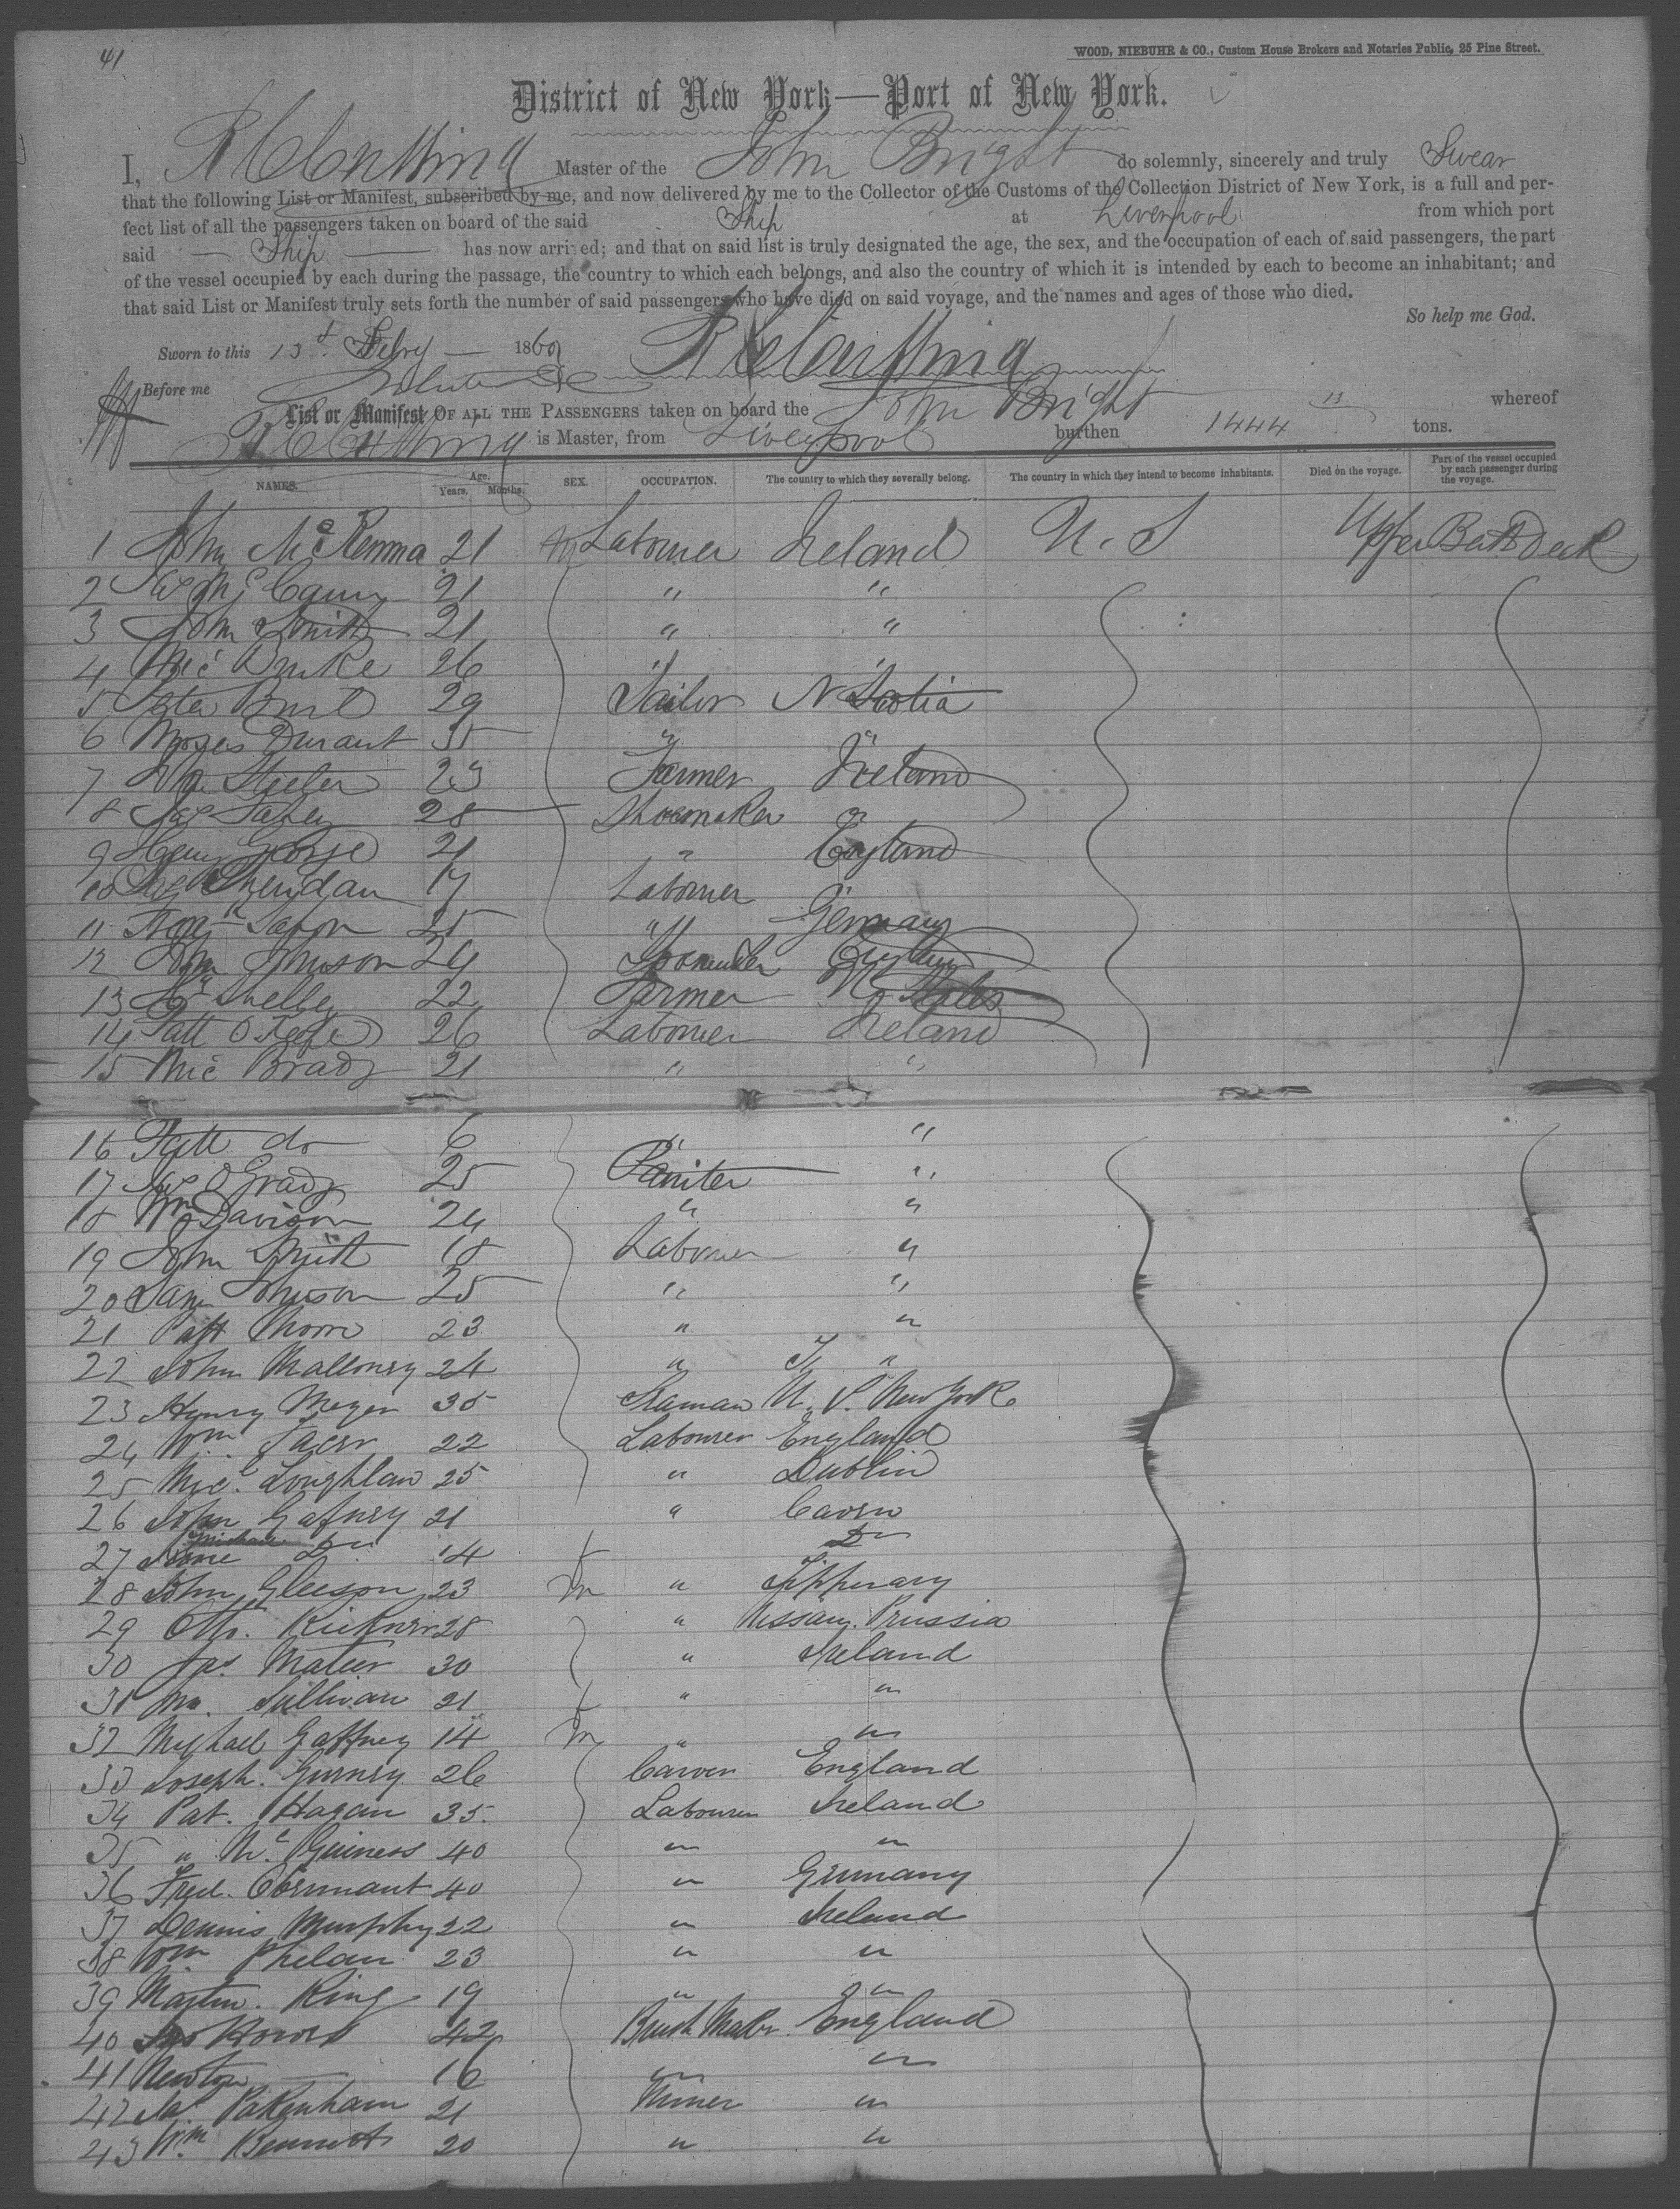 41
WOOD, NIEBUHR & CO., Custom House Brokers and Notaries Public, 25 Pine Street.
District of New York—Port of New York.
I, Master of the John Bright do solemnly, sincerely and truly Swear
that the following List or Manifest, subscribed by me, and now delivered by me to the Collector of the Customs of the Collection District of New York, is a full and per-
fect list of all the passengers taken on board of the said Ship at Liverpool from which port
said Ship has now arrived; and that on said list is truly designated the age, the sex, and the occupation of each of said passengers, the part
of the vessel occupied by each during the passage, the country to which each belongs, and also the country of which it is intended by each to become an inhabitant; and
that said List or Manifest truly sets forth the number of said passengers who have died on said voyage, and the names and ages of those who died.
So help me God.
Sworn to this 13 Feby 186
Before me
List or Manifest OF ALL THE PASSENGERS taken on board the John Bright whereof
is Master, from Liverpool burthen 1444 13 tons.
NAMES. Age. Years. Months. SEX. OCCUPATION. The country to which they severally belong. The country in which they intend to become inhabitants. Died on the voyage. Part of the vessel occupied by each passenger during the voyage.
1 John McKenna 21 m Labourer Ireland U. S Upper Deck
2 21 " "
3 John Smith 21 " "
4 Mic Burke 26 " "
5 Peter 29 Sailor N Scotia
6 Moses Durant 35 " "
7 23 Farmer Ireland
8 Jas Fahey 28 Shoemaker "
9 Henry George 21 " England
10 Sheridan 17 Labourer "
11 25 " Germany
12 John Johnson 24
13 Shelby 22 Farmer U States
14 Patt O Keefe 26 Labourer Ireland
15 Mic Brady 21 " "
16 Patt do 6 " "
17 Jas O Grady 25 Painter "
18 Wm Davison 24 " "
19 John Smith 18 Labourer "
20 Sam Johnson 25 " "
21 Patt 23 " "
22 John Mallonry 24 " "
23 Henry Meyer 35 Seaman U. S. New York
24 Wm. 22 Labourer England
25 Mic. Loughlan 25 " Dublin
26 John Gafnry 21 " Cavan
27 Michael Do 14 f Do
28 John Gleeson 23 m " Tipperary
29 Otto. 28 " Prussia
30 Jas. Mateer 30 " Ireland
31 Sullivan 21 f " "
32 Michael Gaffney 14 m " "
33 Joseph. Gurnry 26 Carver England
34 Pat. Hagan 35. Labourer Ireland
35 " Mc. Guiness 40 " "
36 Fred. 40 " Germany
37 Dennis Murphy 22 " Ireland
38 Wm Phelan 23 " "
39 Martin. King 19 " "
40 42 Brush Maker England
41 Newton 16 " "
42 Jas. Pakenham 21 Miner "
43 Wm Bennett 20 " "